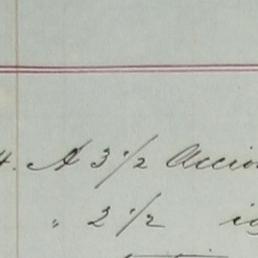 4. A 3 1/2 Accio
" 2 1/2 id